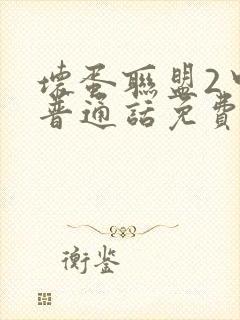 壞蛋聯盟2
普通話免費
衡鉴